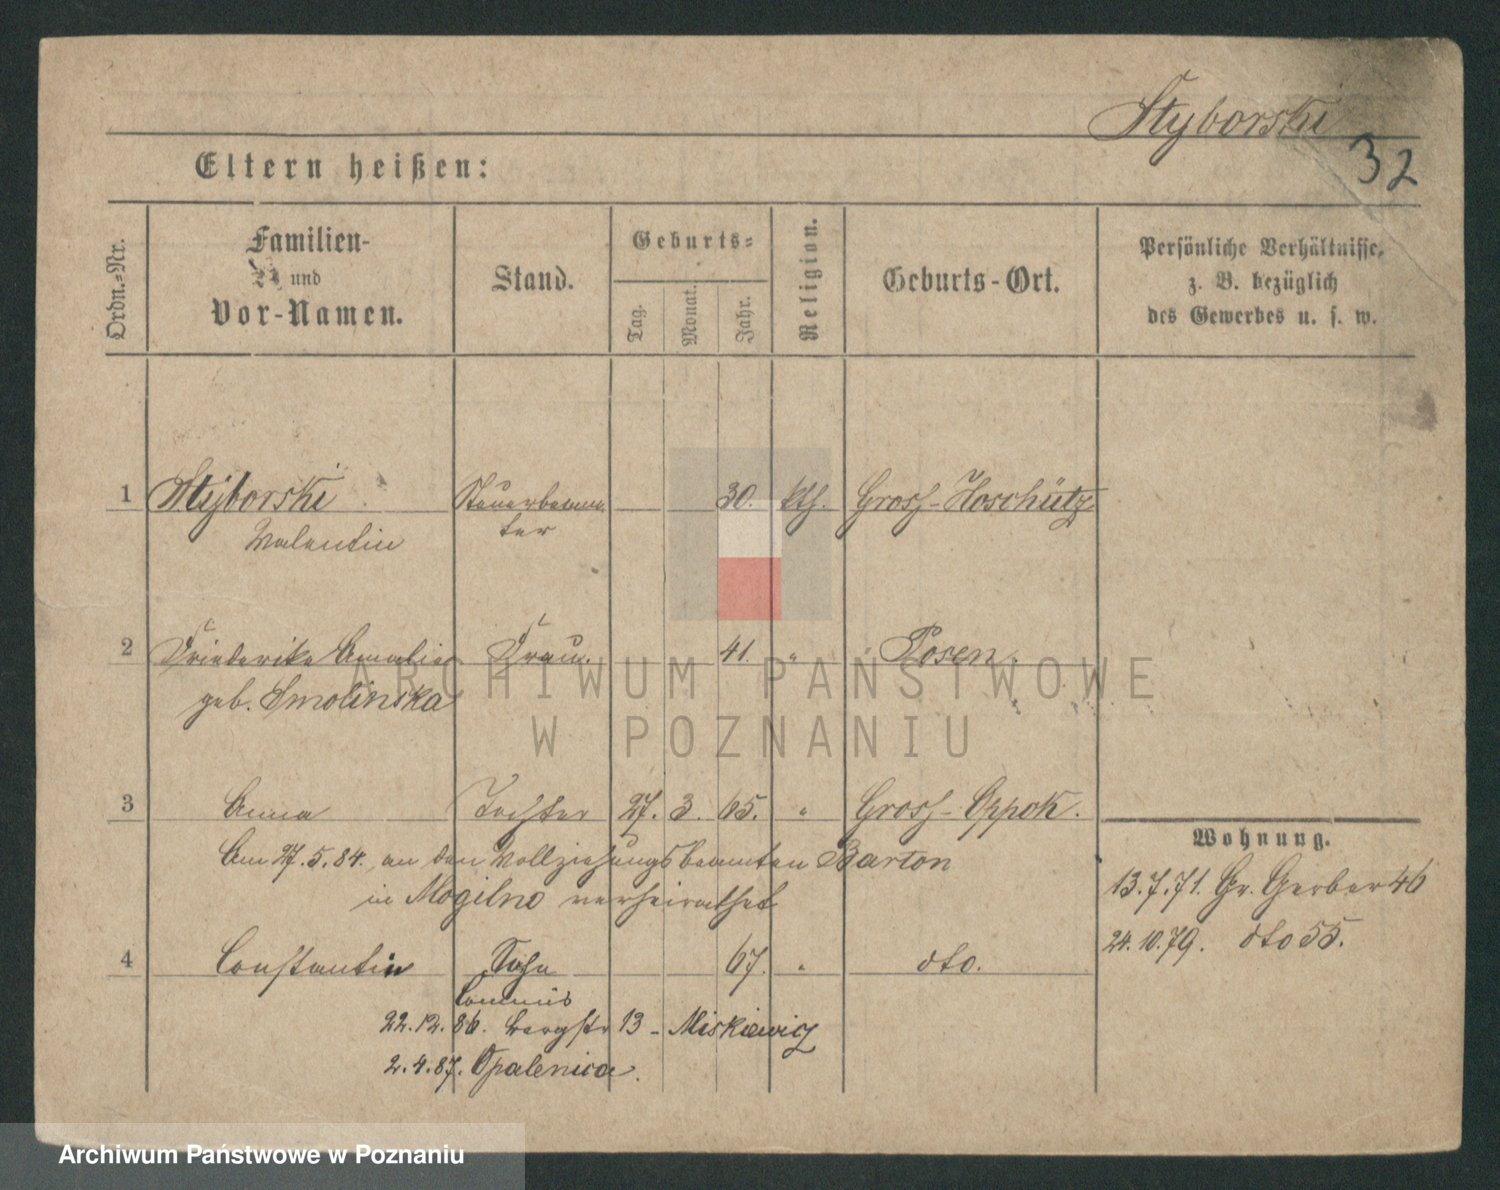 Styborski
32
Eltern heißen:
Ordn.-Nr.
Familien-
und
Vor-Namen.
Stand.
Geburts-
Tag.
Monat.
Jahr.
Religion.
Geburts-Ort.
Persönliche Verhältnisse,
z. B. bezüglich
des Gewerbes u. s. w.
1 Styborski Steuerbeam 30. kth. Gross-Hoschütz
Valentin ter
2 Friederike Amalie Frau. 41. " Posen.
geb. Smolinska
ARCHIWUM PAŃSTWOWE
W POZNANIU
3 Anna Tochter 27. 3. 65. " Gross-Oppok.
Am 27.5.84. an den Vollziehungsbeamten Barton
in Mogilno verheirathet
Wohnung.
13.7.71. Gr. Gerber 46
24.10.79. dto 55.
4 Constantin Sohn 67. " dto.
Commis
22.12.86. Bergstr 13 - Miskiewicz
2.4.87. Opalenica.
Archiwum Państwowe w Poznaniu